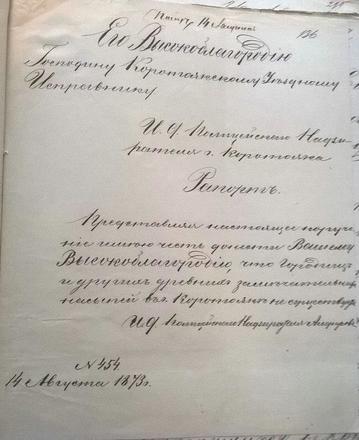 14
126
Его Высокоблагородію
Господину Коротоякскому Уѣздному
Исправнику
И. Д. Полицейскаго Надзи-
рателя г. Коротояка
Рапортъ.
Представляя настоящее поруче-
ніе имѣю честь донести Вашему
Высокоблагородію, что Городищъ
и другихъ древнихъ замѣчательныхъ
насыпей въ г. Коротоякѣ не существуетъ
И. Д. Полицейскаго Надзирателя
№ 454
14 Августа 1873 г.